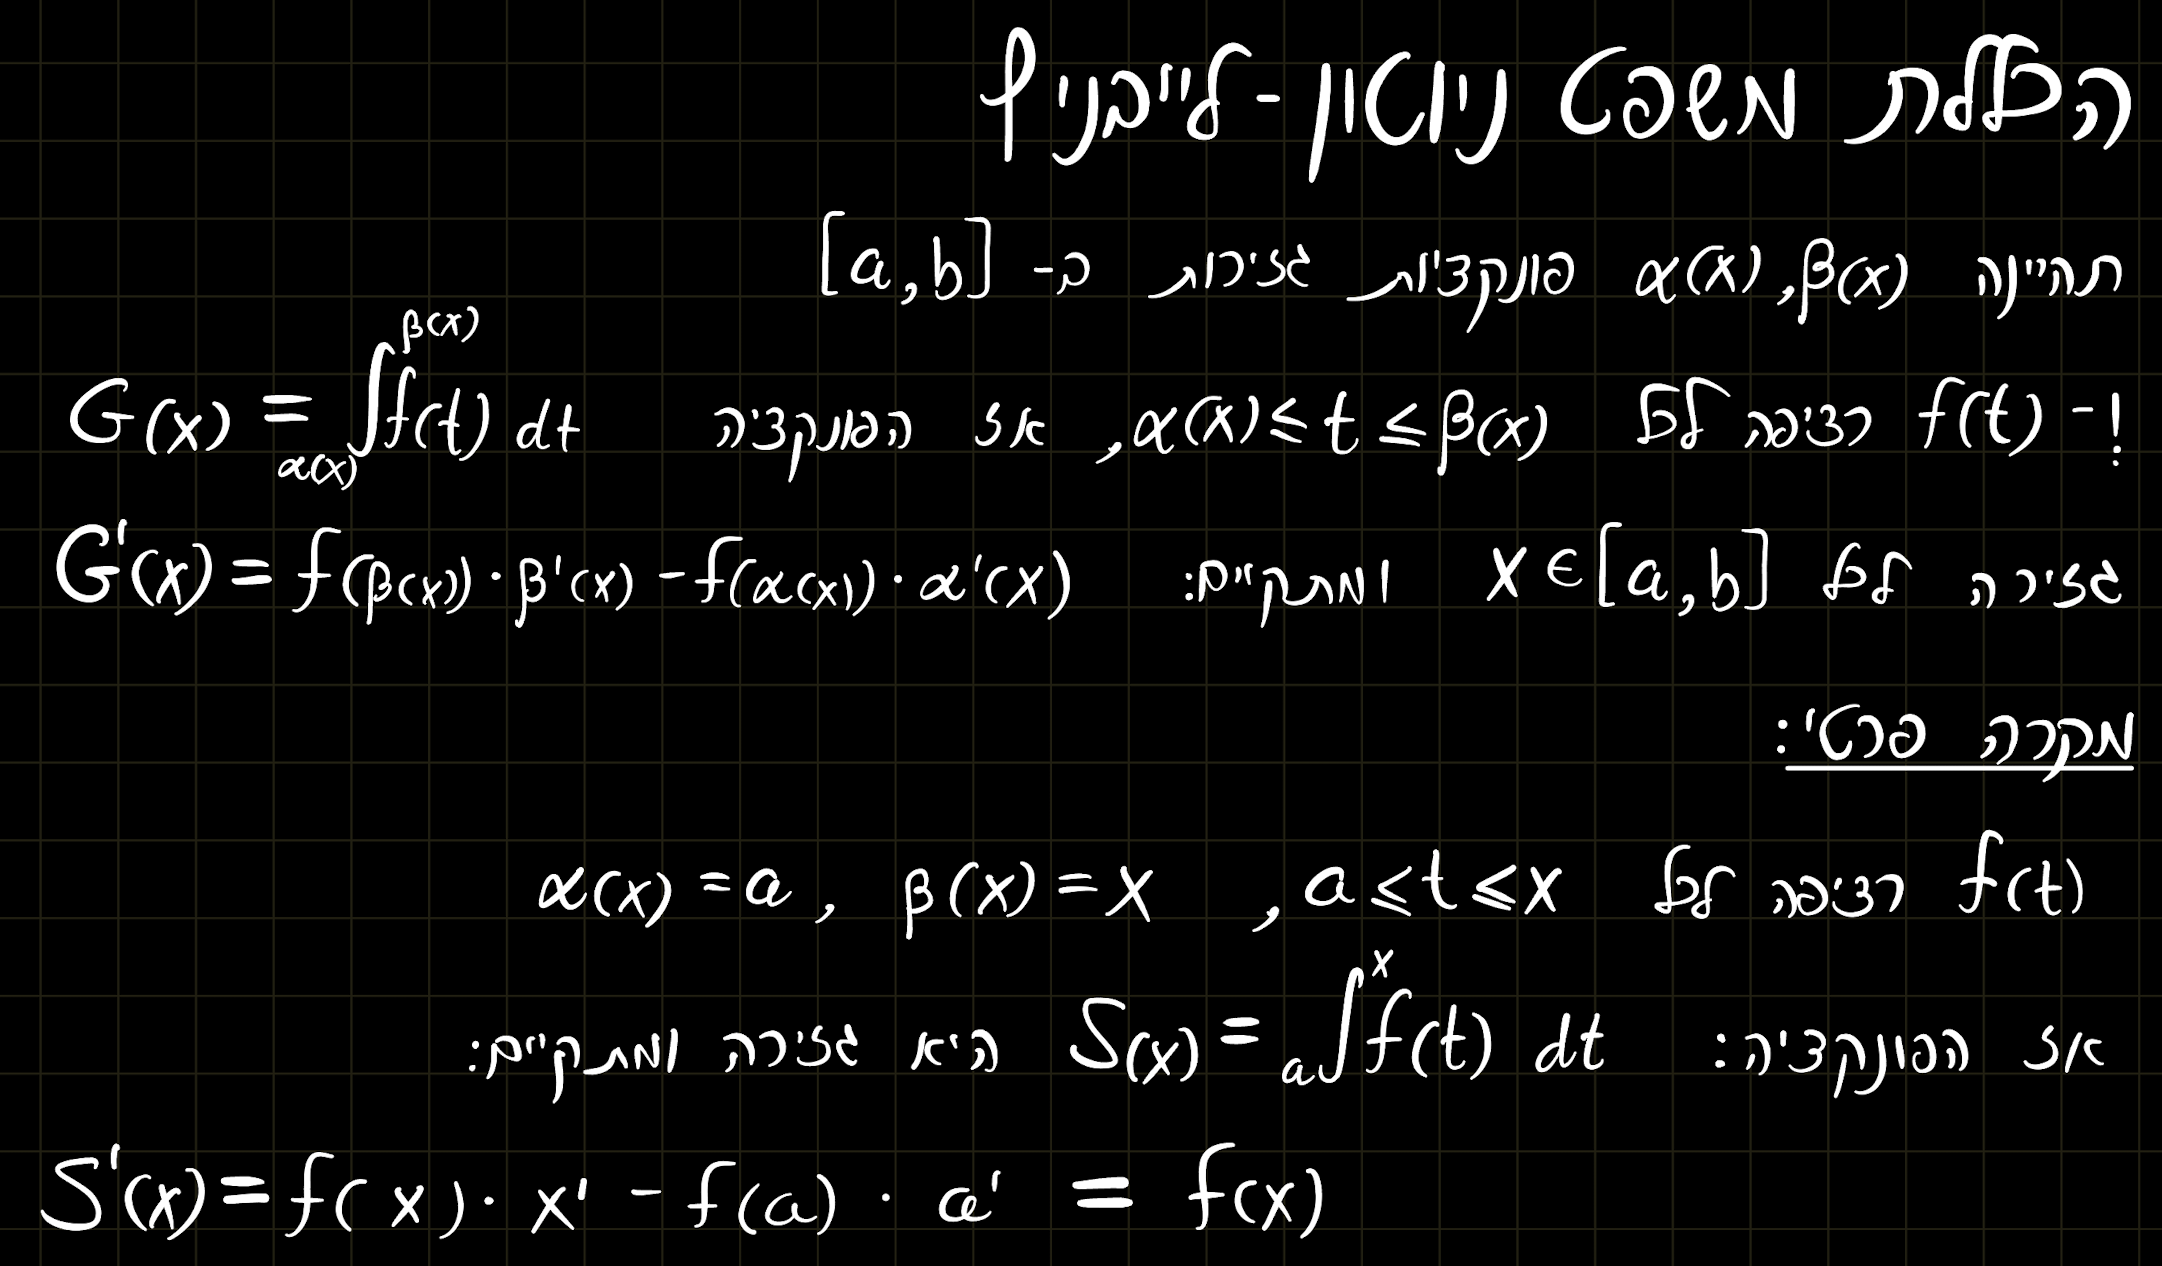 הכללת משפט ניוטון-לייבניץ
תהיינה α(x), β(x) פונקציות גזירות ב- [a,b]
ו- f(t) רציפה לכל α(x) ≤ t ≤ β(x), אז הפונקציה G(x) = ∫_{α(x)}^{β(x)} f(t) dt
גזירה לכל x ∈ [a,b] ומתקיים: G'(x) = f(β(x)) · β'(x) - f(α(x)) · α'(x)
מקרה פרטי:
f(t) רציפה לכל a ≤ t ≤ x, α(x) = a, β(x) = x
אז הפונקציה: S(x) = ∫_a^x f(t) dt היא גזירה ומתקיים:
S'(x) = f(x) · x' - f(a) · a' = f(x)